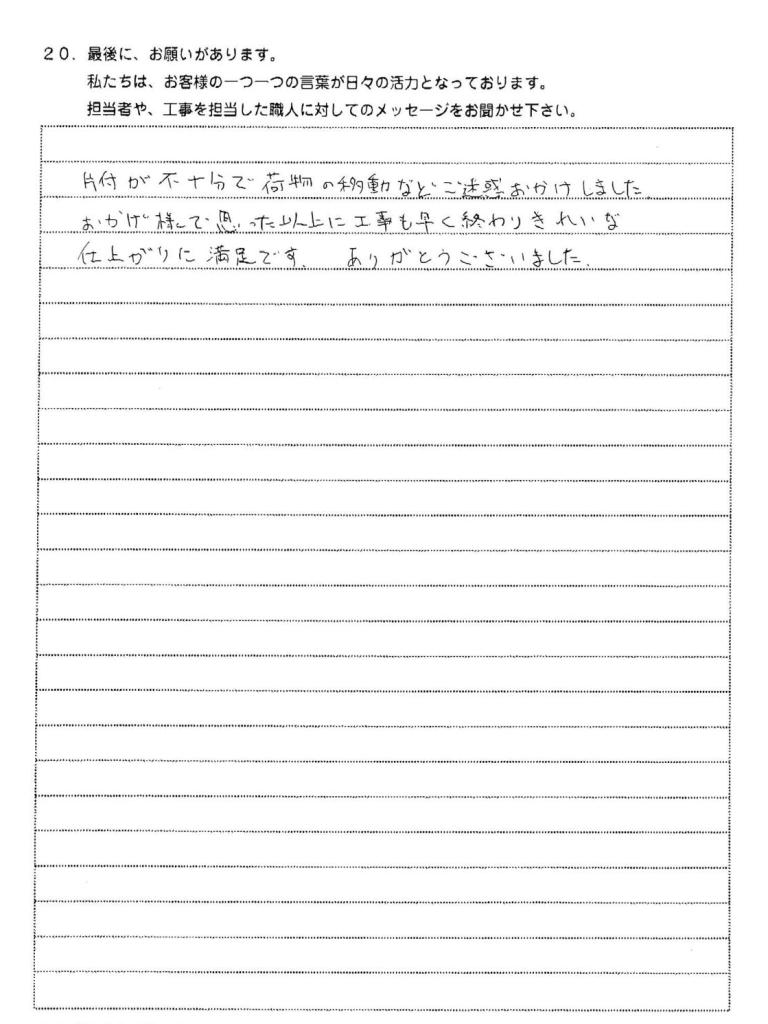 20. 最後に、お願いがあります。
私たちは、お客様の一つ一つの言葉が日々の活力となっております。
担当者や、工事を担当した職人に対してのメッセージをお聞かせ下さい。
片付が不十分で荷物の移動などご迷惑おかけしました。
おかげ様で思った以上に工事も早く終わりきれいな
仕上がりに満足です。 ありがとうございました。